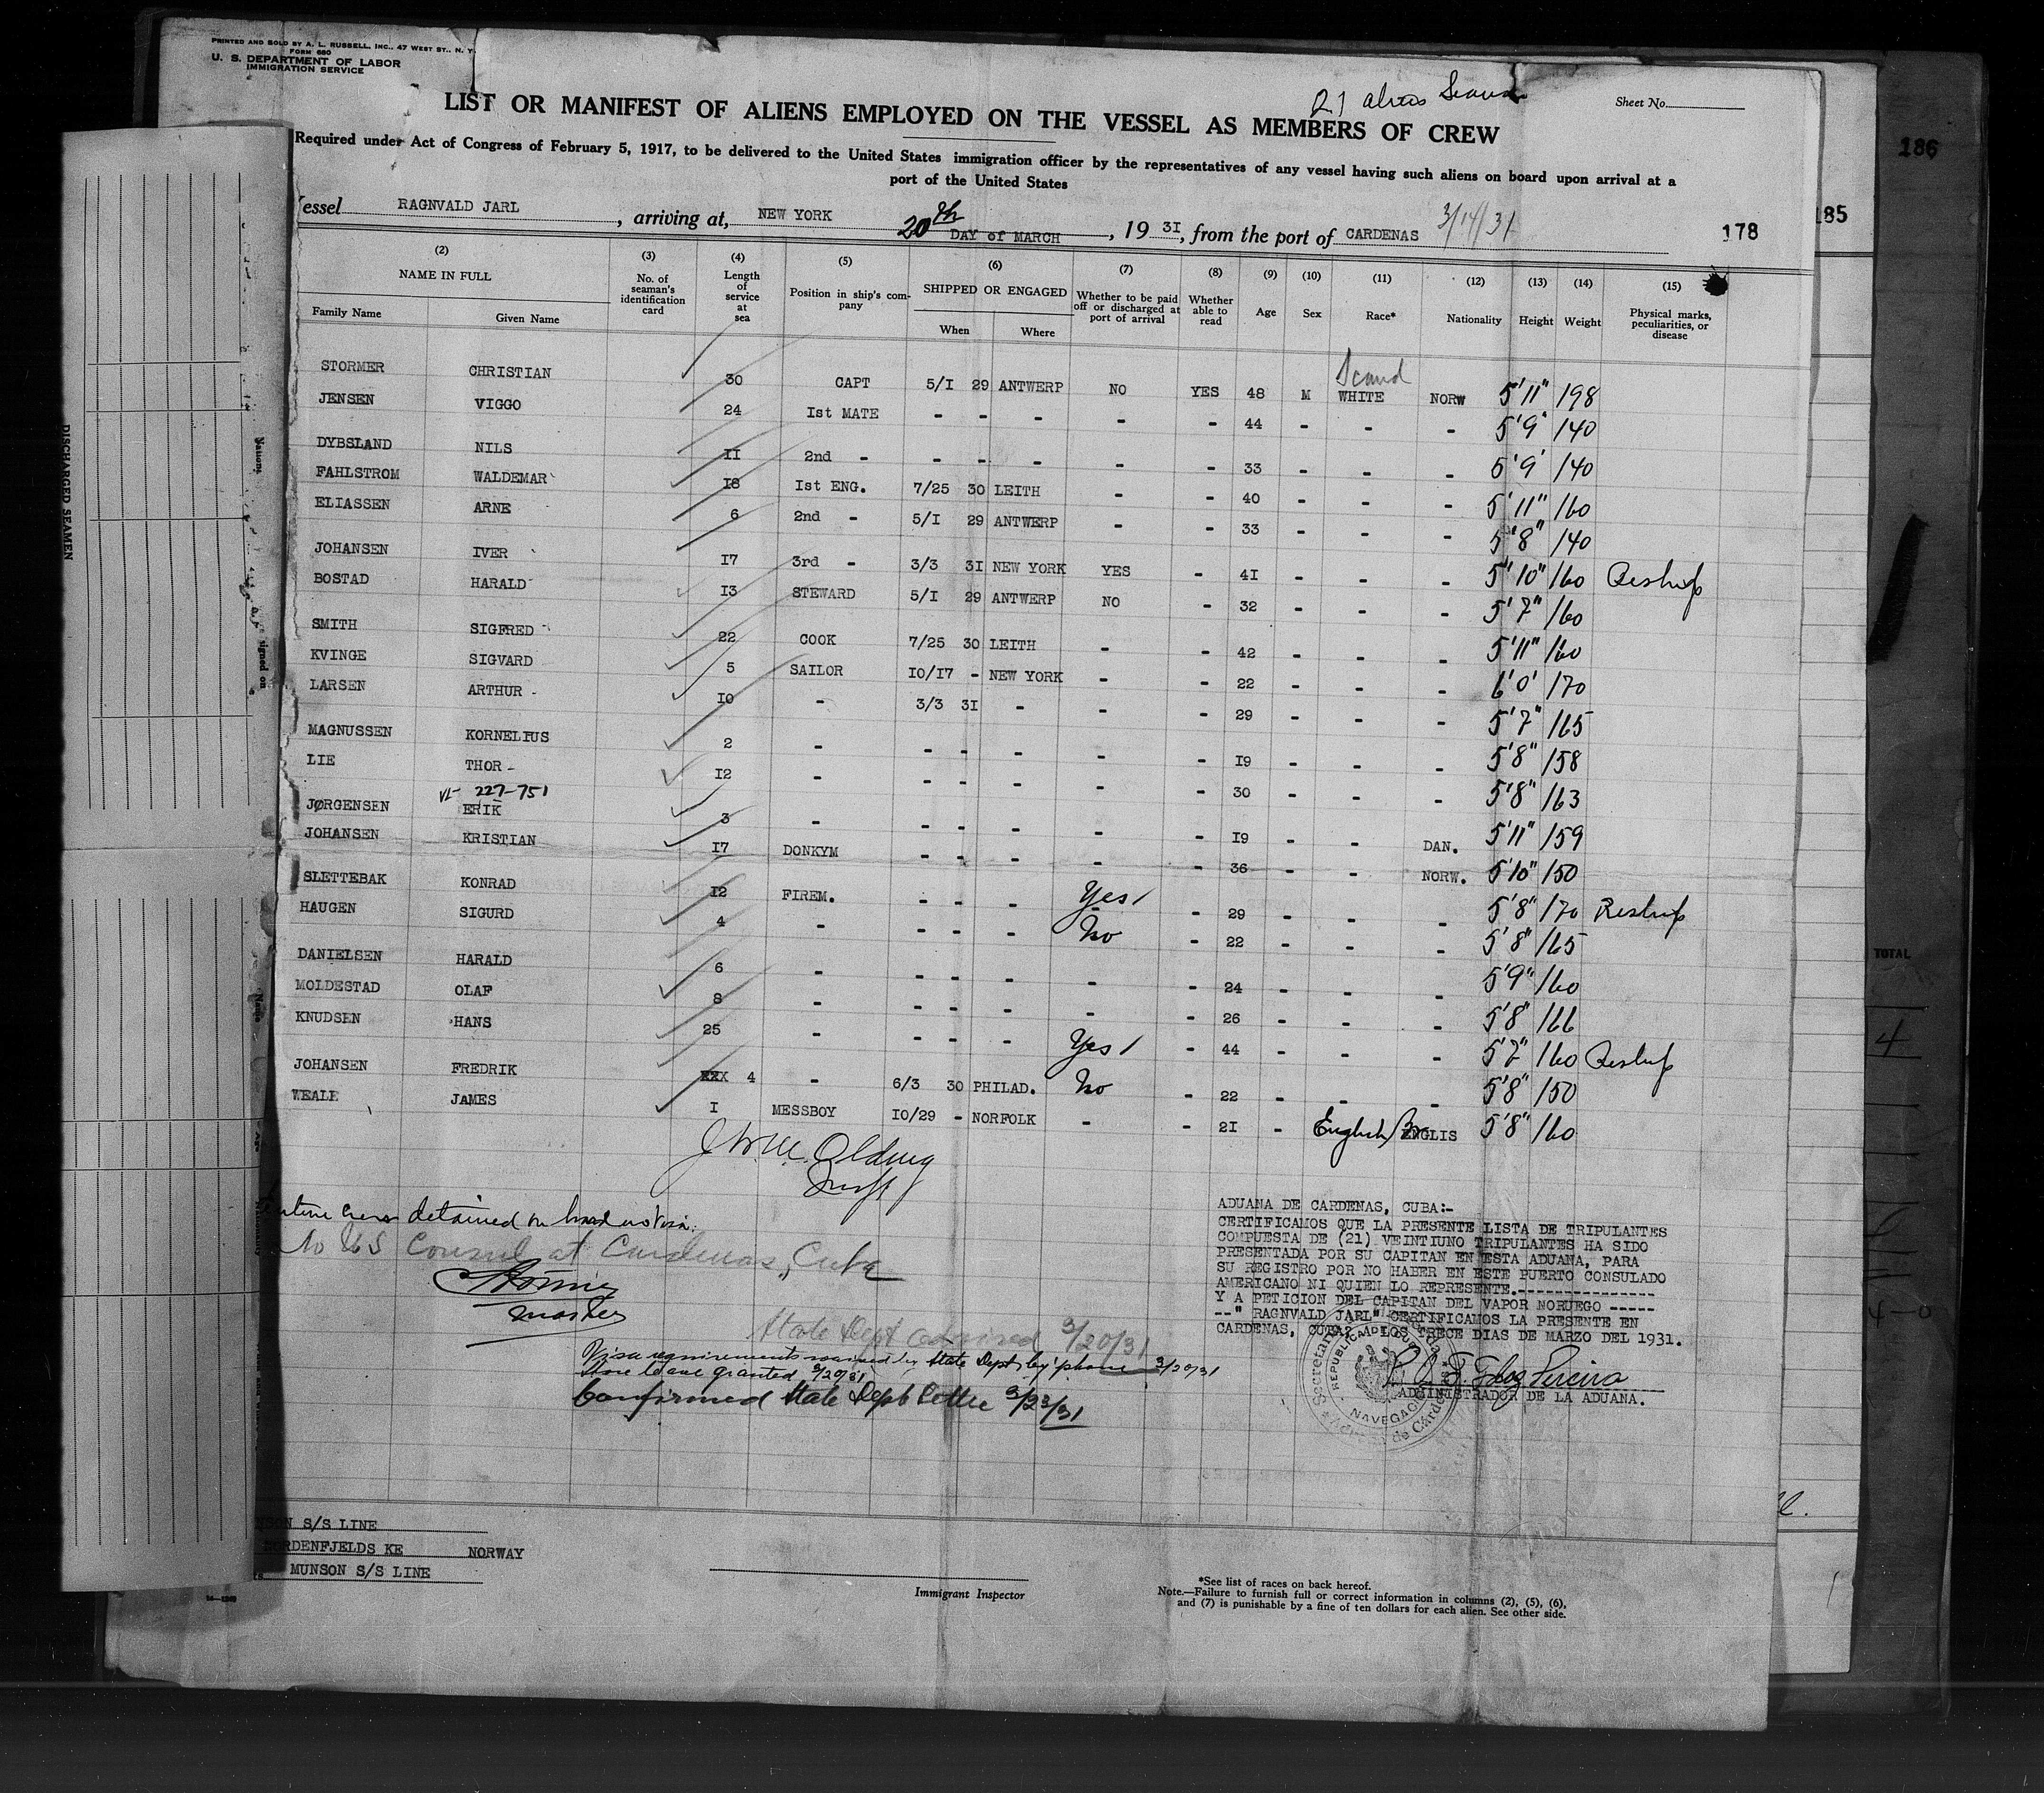 PRINTED AND SOLD BY A. L. RUSSELL, INC., 47 WEST ST., N. Y.
FORM 680
U. S. DEPARTMENT OF LABOR
IMMIGRATION SERVICE
21 aliens Seamen
Sheet No.
LIST OR MANIFEST OF ALIENS EMPLOYED ON THE VESSEL AS MEMBERS OF CREW
Required under Act of Congress of February 5, 1917, to be delivered to the United States immigration officer by the representatives of any vessel having such aliens on board upon arrival at a
port of the United States
essel RAGNVALD JARL, arriving at, NEW YORK 20th DAY of MARCH, 19 3I, from the port of CARDENAS 3/14/31
178
185
186
(2) (3) (4) (5) (6) (7) (8) (9) (10) (11) (12) (13) (14) (15)
NAME IN FULL
Family Name Given Name
No. of seaman's identification card
Length of service at sea
Position in ship's company
SHIPPED OR ENGAGED
When Where
Whether to be paid off or discharged at port of arrival
Whether able to read
Age Sex Race* Nationality Height Weight
Physical marks, peculiarities, or disease
Scand
STORMER CHRISTIAN 30 CAPT 5/I 29 ANTWERP NO YES 48 M WHITE NORW 5'11" 198
JENSEN VIGGO 24 Ist MATE - - - - - 44 - - - 5'9" 140
DYBSLAND NILS II 2nd - - - - - - 33 - - - 5'9' 140
FAHLSTROM WALDEMAR I8 Ist ENG. 7/25 30 LEITH - - 40 - - - 5'11" 160
ELIASSEN ARNE 6 2nd - 5/I 29 ANTWERP - - 33 - - - 5'8" 140
JOHANSEN IVER I7 3rd - 3/3 3I NEW YORK YES - 4I - - - 5'10" 160 Reship
BOSTAD HARALD I3 STEWARD 5/I 29 ANTWERP NO - 32 - - - 5'7" 160
SMITH SIGFRED 22 COOK 7/25 30 LEITH - - 42 - - - 5'11" 160
KVINGE SIGVARD 5 SAILOR IO/I7 - NEW YORK - - 22 - - - 6'0' 170
LARSEN ARTHUR IO - 3/3 3I - - - 29 - - - 5'7" 165
MAGNUSSEN KORNELIUS 2 - - - - - - I9 - - - 5'8" 158
LIE THOR I2 - - - - - - 30 - - - 5'8" 163
227-751
JØRGENSEN ERIK 3 - - - - - - I9 - - DAN. 5'11" 159
JOHANSEN KRISTIAN I7 DONKYM - - - - - 36 - - NORW. 5'10" 150
SLETTEBAK KONRAD I2 FIREM. - - - Yes - 29 - - - 5'8" 170 Reship
HAUGEN SIGURD 4 - - - - No - 22 - - - 5'8" 165
DANIELSEN HARALD 6 - - - - - - 24 - - - 5'9" 160
MOLDESTAD OLAF 8 - - - - - - 26 - - - 5'8" 166
KNUDSEN HANS 25 - - - - Yes - 44 - - - 5'7" 160 Reship
JOHANSEN FREDRIK XXX 4 - 6/3 30 PHILAD. No - 22 - - - 5'8" 150
WEALE JAMES I MESSBOY IO/29 - NORFOLK - - 2I - English Br ENGLIS 5'8" 160
J Wm. Olding
Insp
Entire crew detained on board no visa.
No US Consul at Cardenas, Cuba
Master
State Dept advised 3/20/31
Visa requirements waived by State Dept by 'phone 3/20/31
Shore leave granted 3/20/31
Confirmed State Dept Letter 3/23/31
ADUANA DE CARDENAS, CUBA:-
CERTIFICAMOS QUE LA PRESENTE LISTA DE TRIPULANTES
COMPUESTA DE (21) VEINTIUNO TRIPULANTES HA SIDO
PRESENTADA POR SU CAPITAN EN ESTA ADUANA, PARA
SU REGISTRO POR NO HABER EN ESTE PUERTO CONSULADO
AMERICANO NI QUIEN LO REPRESENTE.-----------------
Y A PETICION DEL CAPITAN DEL VAPOR NORUEGO -----
--" RAGNVALD JARL" CERTIFICAMOS LA PRESENTE EN
CARDENAS, CUBA? A LOS TRECE DIAS DE MARZO DEL 1931.
ADMINISTRADOR DE LA ADUANA.
NSON S/S LINE
NORDENFJELDS KE NORWAY
MUNSON S/S LINE
Immigrant Inspector
*See list of races on back hereof.
Note.—Failure to furnish full or correct information in columns (2), (5), (6),
and (7) is punishable by a fine of ten dollars for each alien. See other side.
DISCHARGED SEAMEN
signed on
TOTAL
4
4-0